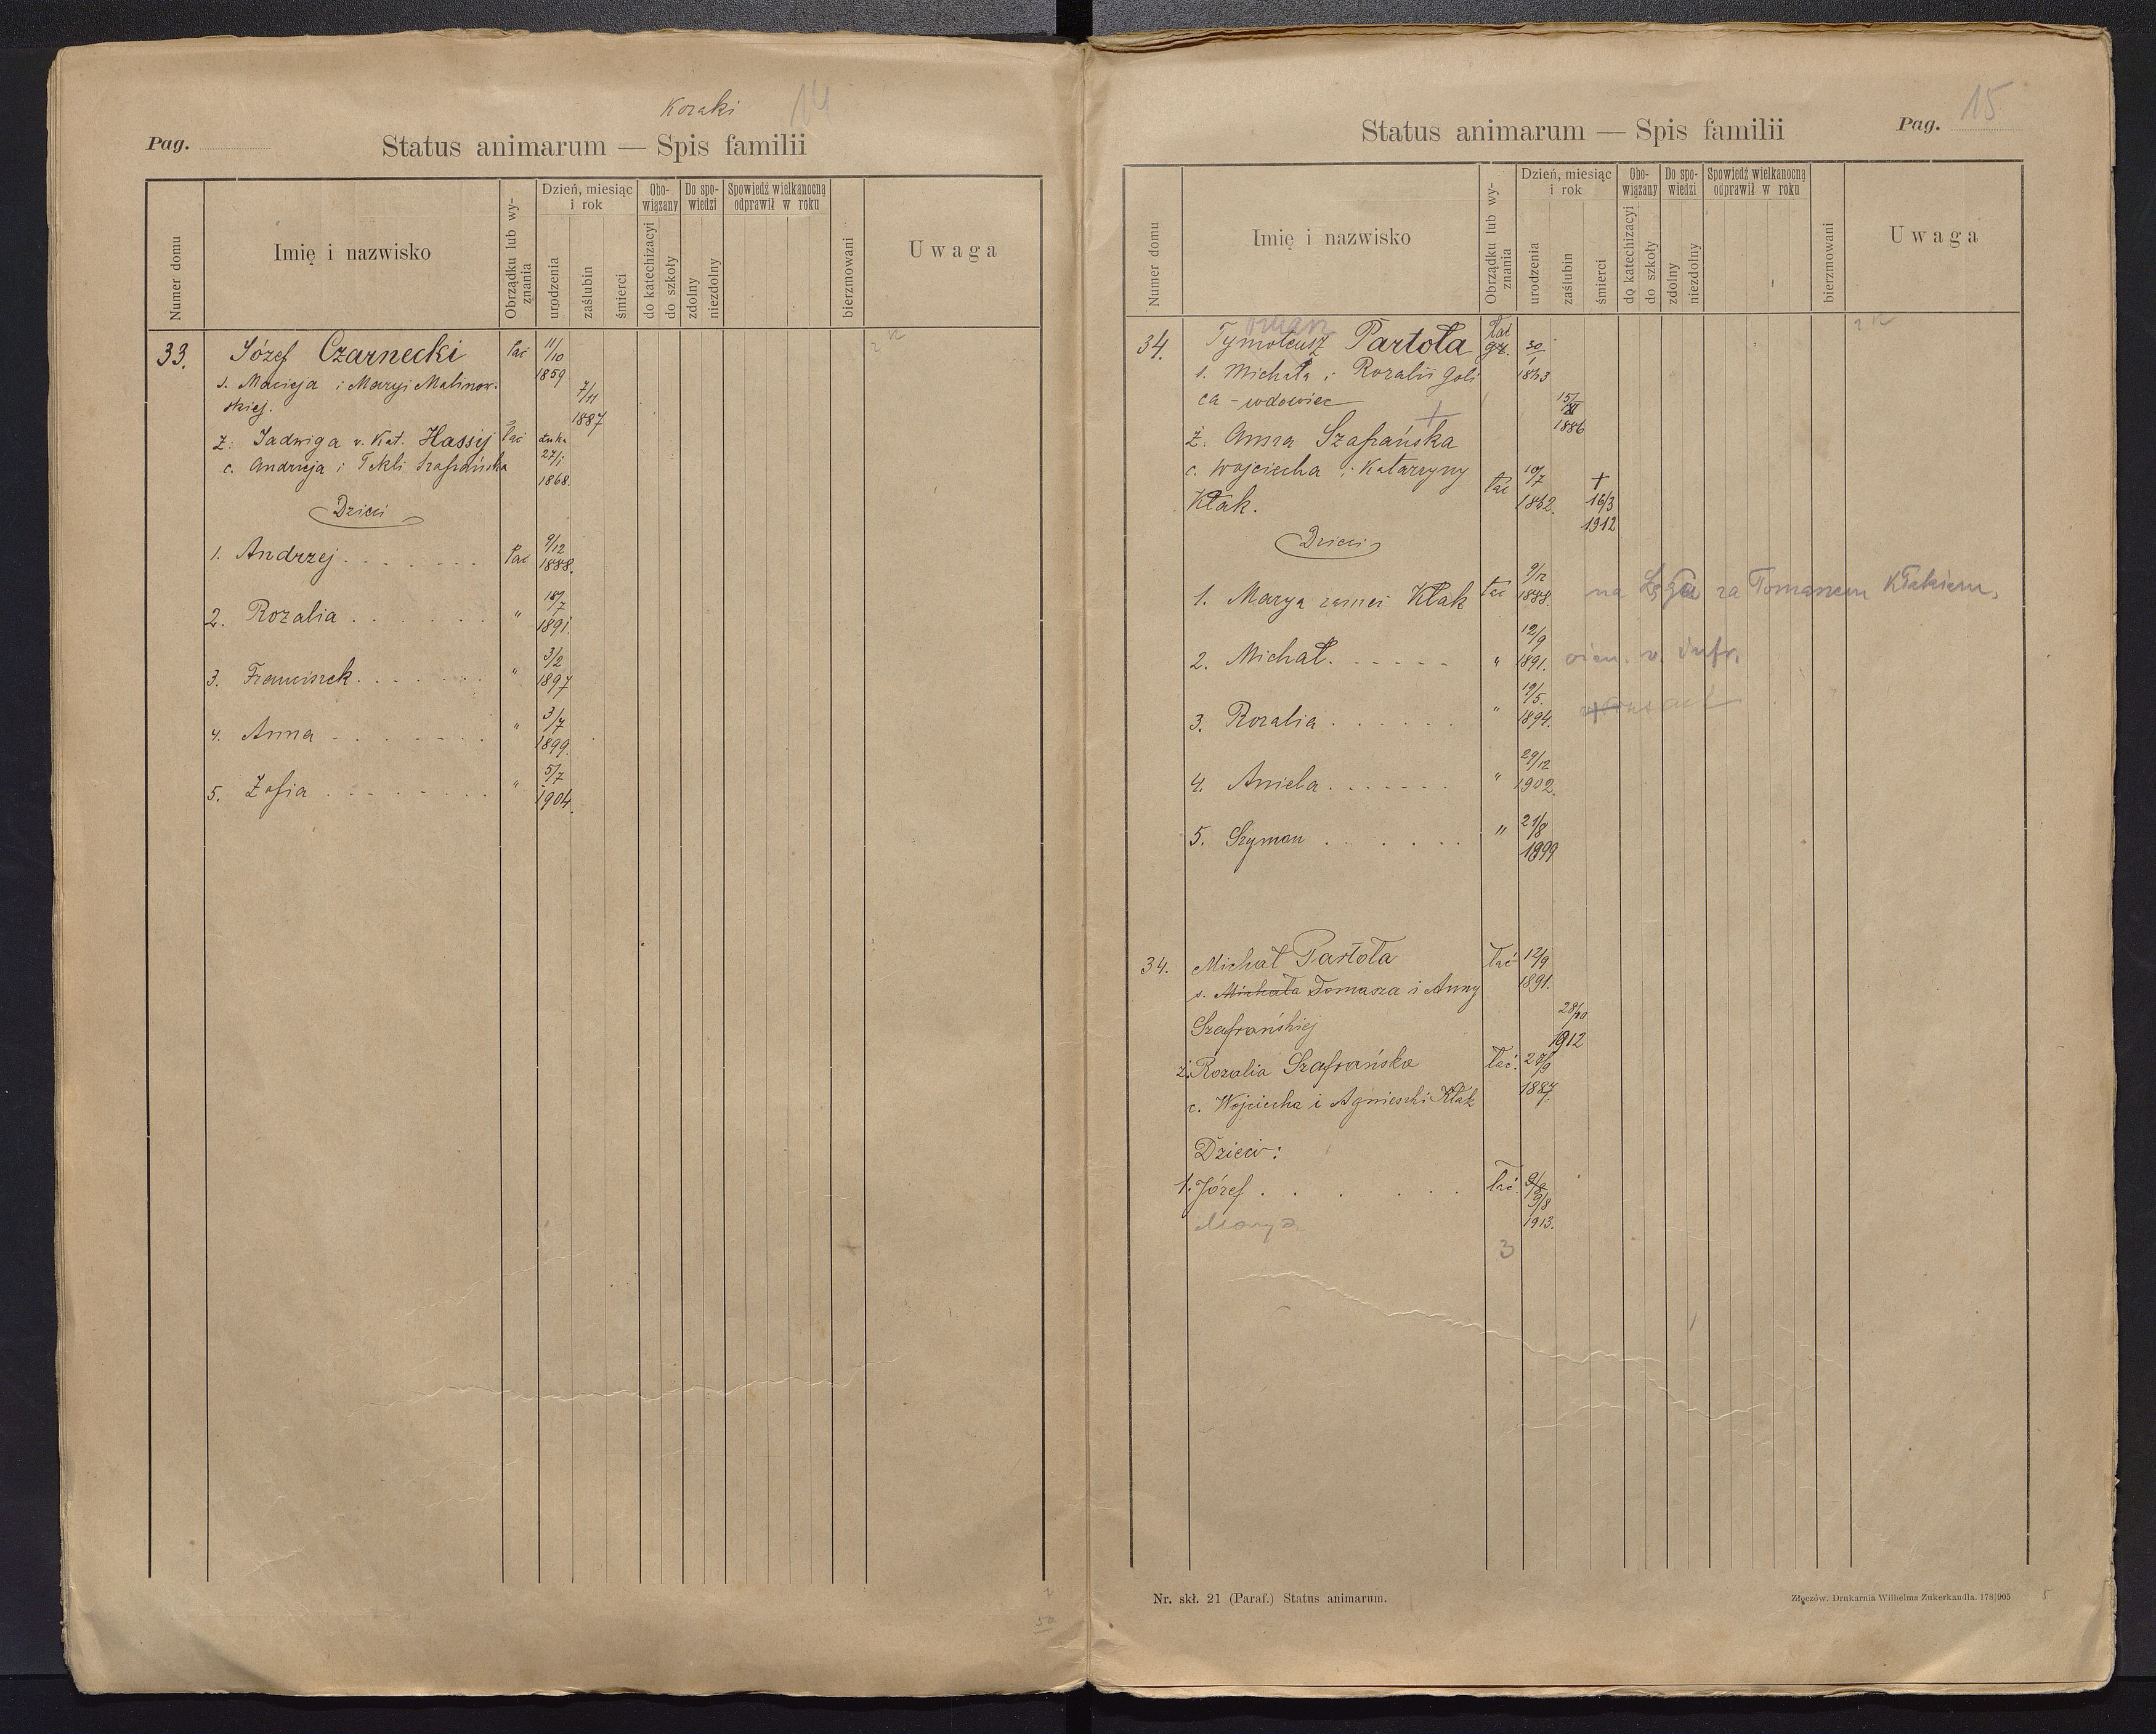 Koraki 14
Pag.
Status animarum — Spis familii
Numer domu
Imię i nazwisko
Obrządku lub wyznania
Dzień, miesiąc i rok
urodzenia
zaślubin
śmierci
Obowiązany
do katechizacyi
do szkoły
Do spowiedzi
zdolny
niezdolny
Spowiedź wielkanocną odprawił w roku
bierzmowani
Uwaga
33. Józef Czarnecki łać 11/10 1859
s. Macieja i Maryi Malinow-
skiej. 7/11 1887
ż. Jadwiga v. Kat. Hassij łać 27/1 1868.
c. Andrzeja i Tekli Szafrańska
Dzieci
1. Andrzej łać 9/12 1888.
2. Rozalia " 18/7 1891.
3. Franciszek " 3/2 1897
4. Anna " 3/7 1899.
5. Zofia " 5/7 1904.
50
Status animarum — Spis familii
Pag. 15
Numer domu
Imię i nazwisko
Obrządku lub wyznania
Dzień, miesiąc i rok
urodzenia
zaślubin
śmierci
Obowiązany
do katechizacyi
do szkoły
Do spowiedzi
zdolny
niezdolny
Spowiedź wielkanocną odprawił w roku
bierzmowani
Uwaga
34. Tymoteusz Partoła łać gr. 30/1
s. Michała i Rozalii Goli
ca - wdowiec 15/XI 1886
ż. Anna Szafrańska +
c. Wojciecha i Katarzyny łać 10/7
Kłak. + 16/3 1912
Dzieci
1. Marya zamęż Kłak łać 9/12 1888. na Ługa za Tomaszem Kłakiem.
2. Michał. " 12/9 1891.
3. Rozalia " 19/5. 1894.
4. Aniela " 29/12 1902.
5. Szymon " 21/8 1899
34. Michał Partoła łać 12/9 1891.
s. Michała Tomasza i Anny
Szafrańskiej 28/10 1912
ż. Rozalia Szafrańska łać. 27/9 1887.
c. Wojciecha i Agnieszki Kłak
Dzieci:
1. Józef łać. 9/8 1913.
Marya
3
Nr. skł. 21 (Paraf.) Status animarum.
Złoczów. Drukarnia Wilhelma Zukerkandla. 178/905
5